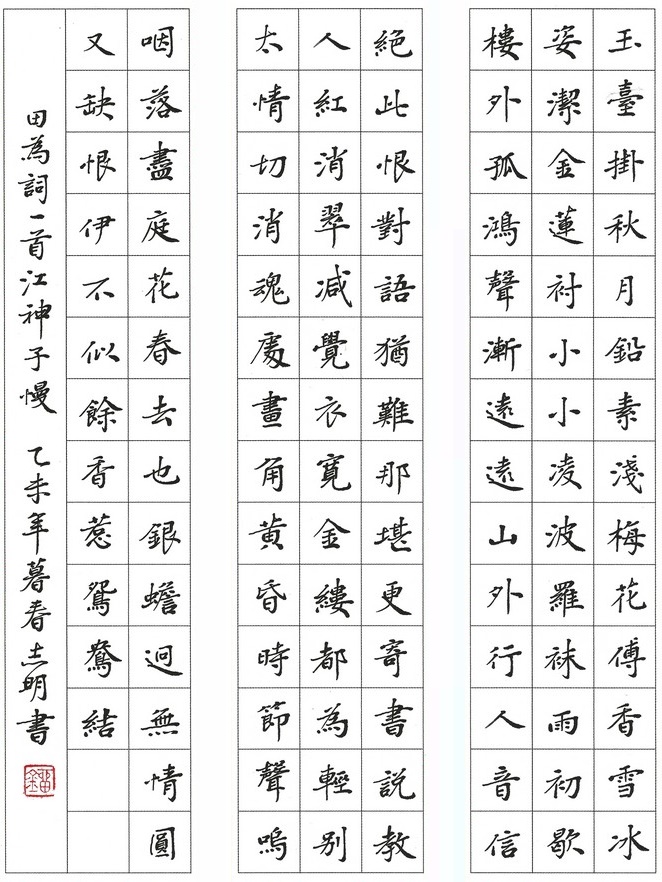 玉臺掛秋月鉛素淺梅花傅香雪冰
姿潔金蓮衬小小凌波羅袜雨初歇
樓外孤鴻聲漸遠遠山外行人音信
絕此恨對語猶難那堪更寄書說教
人紅消翠减覺衣寬金縷都為輕别
太情切消魂處畫角黄昏時節聲嗚
咽落盡庭花春去也銀蟾迥無情圓
又缺恨伊不似餘香惹鴛鴦結
田為詞一首江神子慢 乙未年暮春志明書